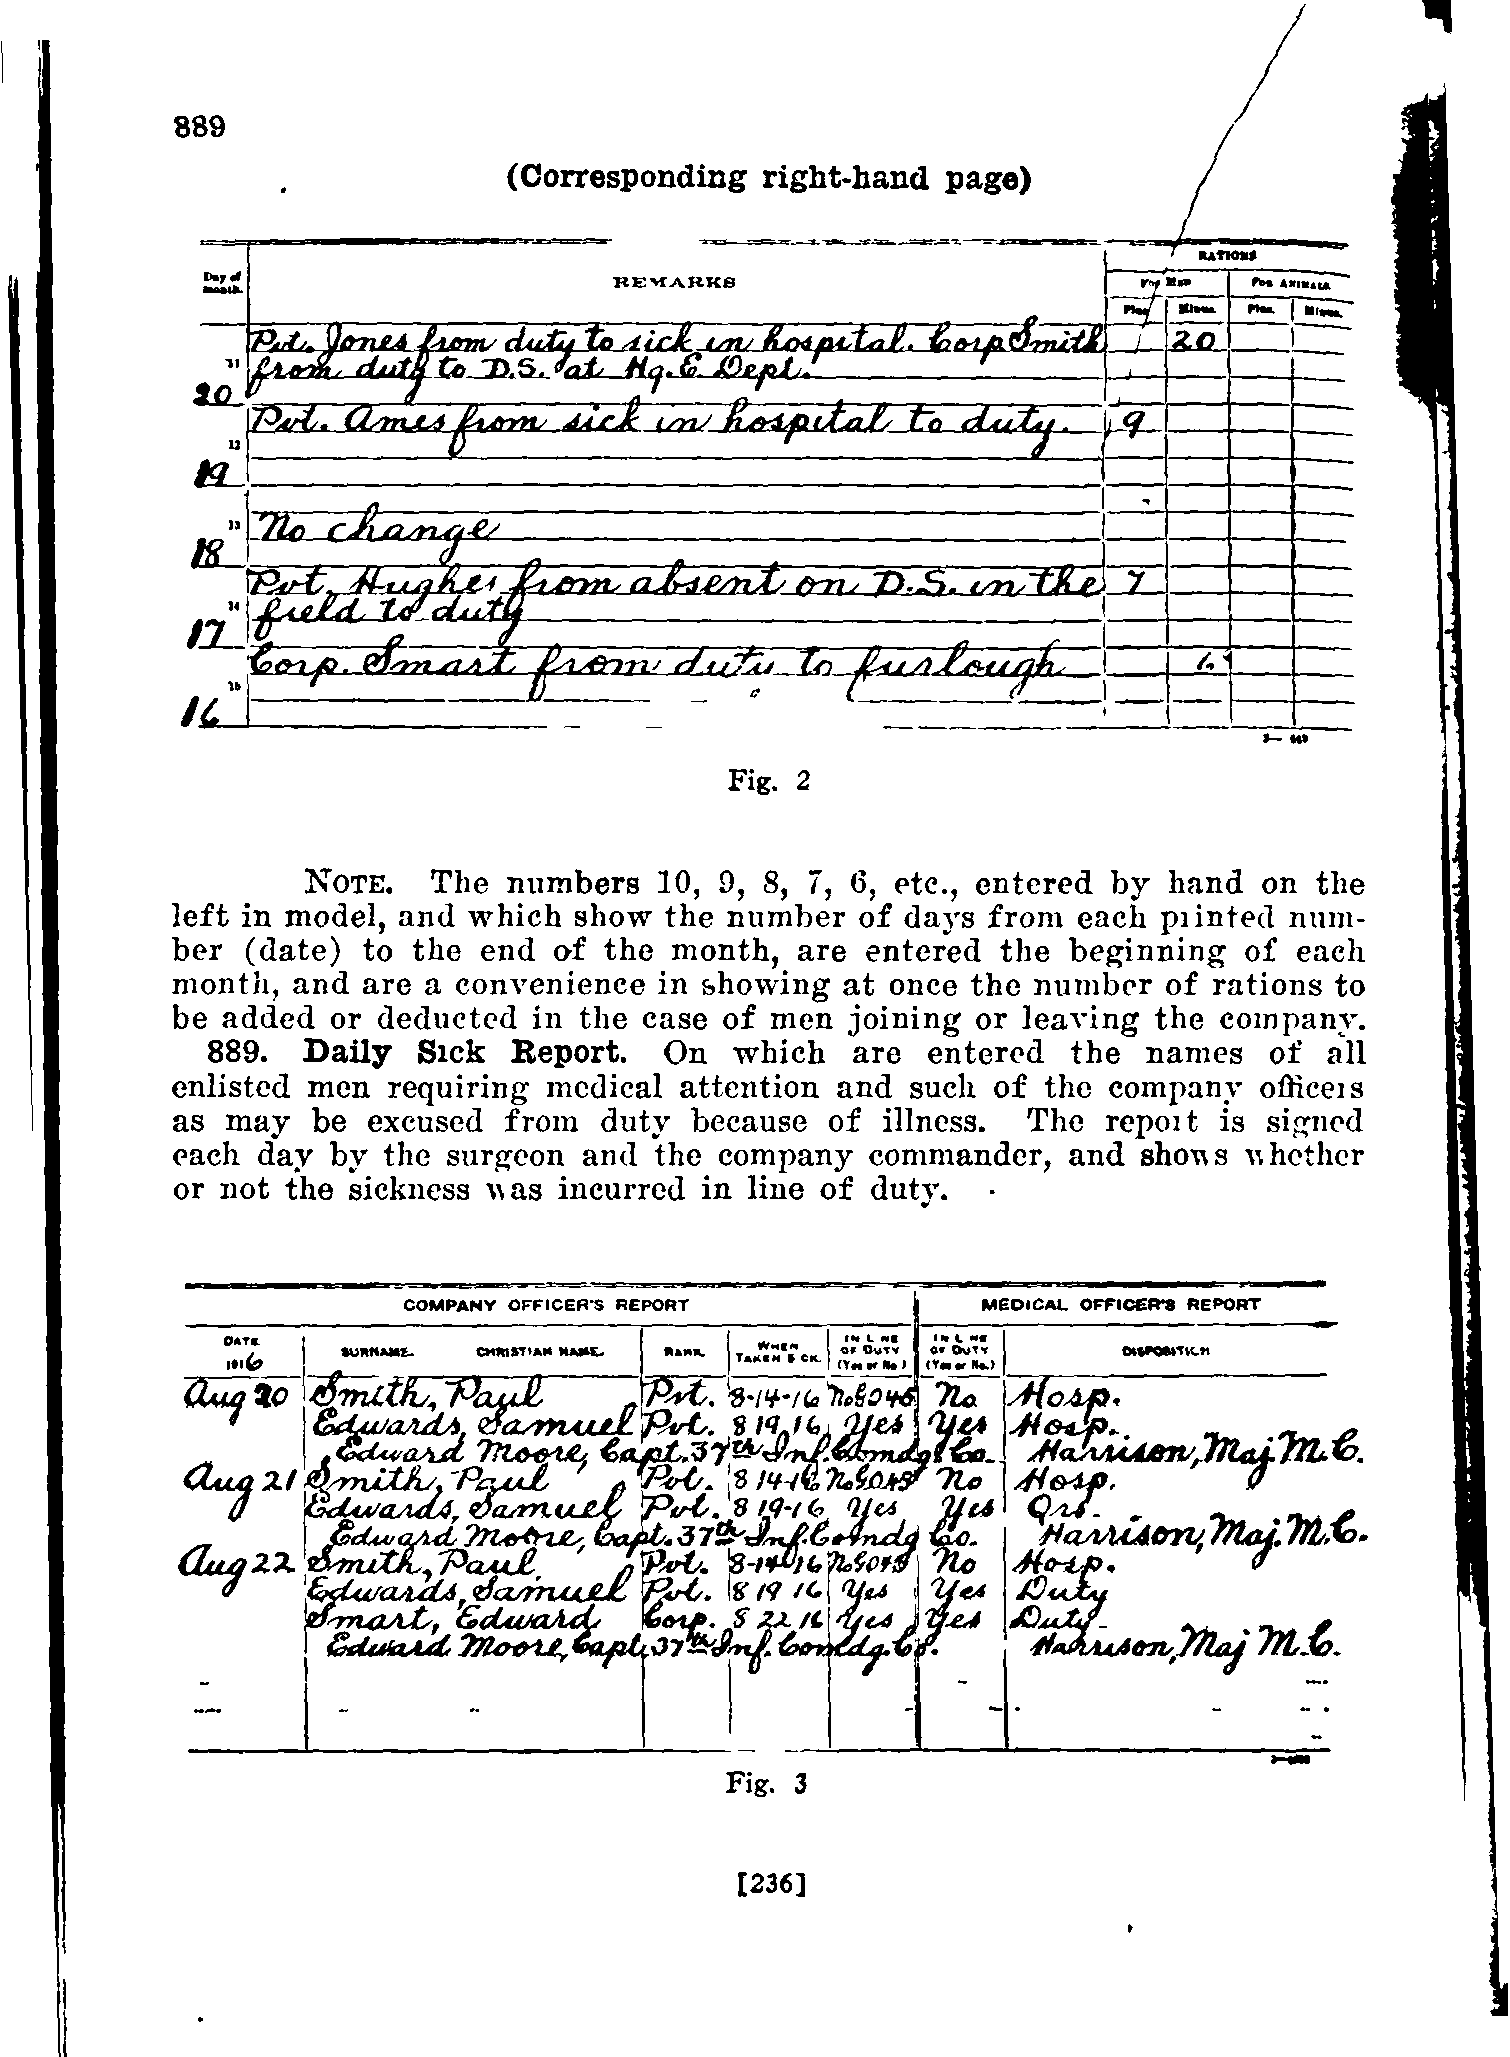 889
(Corresponding right-hand page)
Day of month.
REMARKS
RATIONS
For Men
For Animals
Plus Minus. Plus. Minus.
Pvt. Jones from duty to sick in hospital. Corp Smith 20
11 from duty to D.S. at Hq. E. Dept.
20
Pvt. Ames from sick in hospital to duty. 9
12
19
13 No change
18
Pvt. Hughes from absent on D.S. in the 7
14 field to duty
17
Corp. Smart from duty to furlough
15
16
Fig. 2
NOTE. The numbers 10, 9, 8, 7, 6, etc., entered by hand on the
left in model, and which show the number of days from each printed num-
ber (date) to the end of the month, are entered the beginning of each
month, and are a convenience in showing at once the number of rations to
be added or deducted in the case of men joining or leaving the company.
889. Daily Sick Report. On which are entered the names of all
enlisted men requiring medical attention and such of the company officers
as may be excused from duty because of illness. The report is signed
each day by the surgeon and the company commander, and shows whether
or not the sickness was incurred in line of duty.
COMPANY OFFICER'S REPORT MEDICAL OFFICER'S REPORT
DATE 1916 SURNAME. CHRISTIAN NAME. RANK. WHEN TAKEN SICK. IN LINE OF DUTY (Yes or No.) IN LINE OF DUTY (Yes or No.) DISPOSITION
Aug 20 Smith, Paul Pvt. 8-14-16 No No Hosp.
Edwards, Samuel Pvt. 8 19 16 Yes Yes Hosp.
Edward Moore, Capt. 37th Inf. Comdg. Co. Harrison, Maj. M.C.
Aug 21 Smith, Paul Pvt. 8 14-16 No No Hosp.
Edwards, Samuel Pvt. 8 19-16 Yes Yes Qrs.
Edward Moore, Capt. 37th Inf. Comdg Co. Harrison, Maj. M.C.
Aug 22 Smith, Paul Pvt. 8-14-16 No No Hosp.
Edwards, Samuel Pvt. 8 19 16 Yes Yes Duty
Smart, Edward Corp. 8 22 16 Yes Yes Duty
Edward Moore, Capt 37th Inf. Comdg. Co. Harrison, Maj M.C.
Fig. 3
[236]